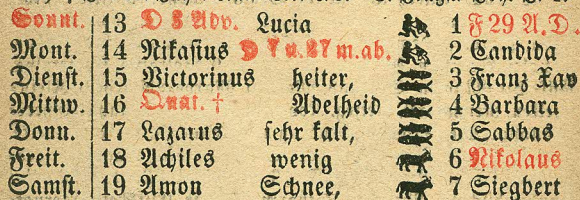 Sonnt. 13 D 3 Adv. Lucia 1 F 29 A. D.
Mont. 14 Nikasius 7 u. 27 m. ab. 2 Candida
Dienst. 15 Victorinus heiter, 3 Franz Xav
Mittw. 16 Quat. † Adelheid 4 Barbara
Donn. 17 Lazarus sehr kalt, 5 Sabbas
Freit. 18 Achiles wenig 6 Nikolaus
Samst. 19 Amon Schnee, 7 Siegbert